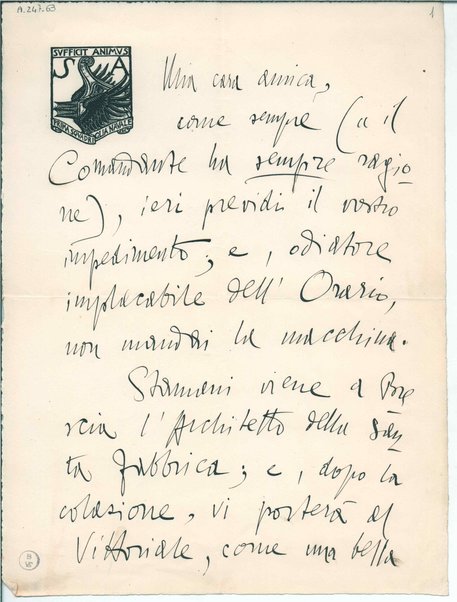 A.247.63
1
SVFFICIT ANIMVS
S A
PRIMA SQVADRIGLIA NAVALE
Mia cara amica,
come sempre ("il
Comandante ha sempre ragio-
ne), ieri previdi il vostro
impedimento; e, odiatore
implacabile dell' Orario,
non mandai la macchina.
Stamani viene a Bre
scia l'Architetto della San
ta Fabbrica; e, dopo la
colazione, vi porterà al
Vittoriale, come una bella